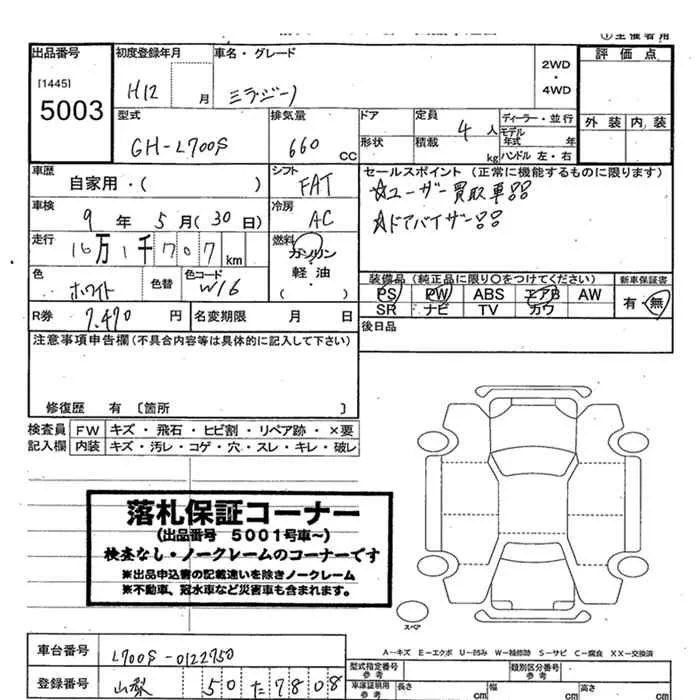 ①主催者用
出品番号
[1445]
5003
初度登録年月
H12 月
車名・グレード
ミラジーノ
2WD
・
4WD
評価点
外装 内装
型式
GH-L700S
排気量
660 CC
ドア
形状
定員
4 人
積載
kg
ディーラー・並行
モデル年式 年
ハンドル 左・右
車歴
自家用・( )
シフト
FAT
車検
9 年 5 月(30 日)
冷房
AC
走行
16万1千707 km
燃料
ガソリン
軽油
( )
色
ホワイト 色替
色コード
W16
R券 7,470 円
名変期限 月 日
セールスポイント (正常に機能するものに限ります)
☆ユーザー買取車!!
☆ドアバイザー!!
装備品 (純正品に限り○をつけてください)
PS PW ABS エアB AW
SR ナビ TV カワ
新車保証書
有・無
後日品
注意事項申告欄(不具合内容等は具体的に記入して下さい)
修復歴 有 〔箇所 〕
検査員 FW キズ・飛石・ヒビ割・リペア跡・×要
記入欄 内装 キズ・汚レ・コゲ・穴・スレ・キレ・破レ
落札保証コーナー
(出品番号 5001号車~)
検査なし・ノークレームのコーナーです
※出品申込書の記載違いを除きノークレーム
※不動車、冠水車など災害車も含まれます。
スペア
A-キズ E-エクボ U-凹み W-補修跡 S-サビ C-腐食 XX-交換済
車台番号 L700S-0122750
登録番号 山梨 50 た 7808
型式指定番号
参考
類別区分番号
参考
車庫証明用
参考
長さ cm
幅 cm
高さ cm